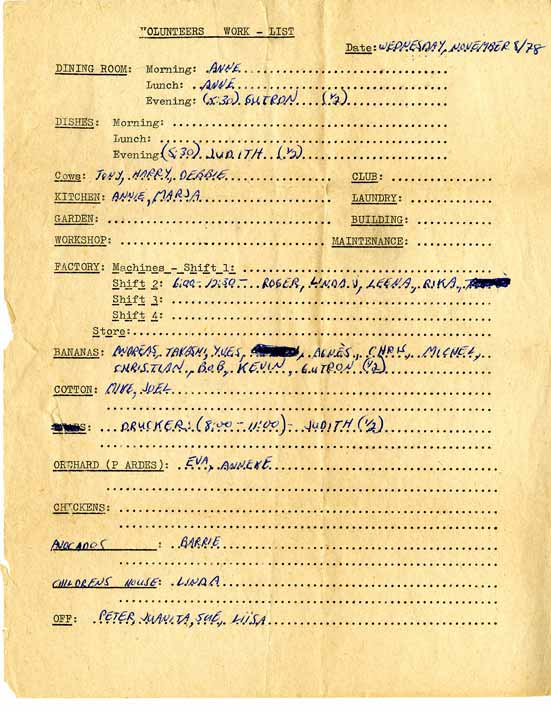 VOLUNTEERS WORK - LIST
Date: WEDNESDAY, NOVEMBER 8/78
DINING ROOM: Morning: ANNE
Lunch: ANNE
Evening: (5:30) GUTRON (½)
DISHES: Morning:
Lunch:
Evening (5:30) JUDITH (½)
Cows: TONY, HARRY, DEBBIE CLUB:
KITCHEN: ANNIE, MARJA LAUNDRY:
GARDEN: BUILDING:
WORKSHOP: MAINTENANCE:
FACTORY: Machines - Shift 1:
Shift 2: 6:00 - 12:30 - ROGER, LINDA.J, LEENA, RIKA,
Shift 3:
Shift 4:
Store:
BANANAS: ANDREAS, TAKASHI, YVES, AGNÈS, CHRIS, MICHEL,
CHRISTIAN, BOB, KEVIN, GUTRON (½)
COTTON: MIKE, JOEL
DRUCKER: (8:00 - 11:00) - JUDITH (½)
ORCHARD (P ARDES): EVA, ANNEKE
CHICKENS:
AVOCADOS : BARRIE
CHILDRENS HOUSE: LINDA
OFF: PETER, JUANITA, SUE, LIISA